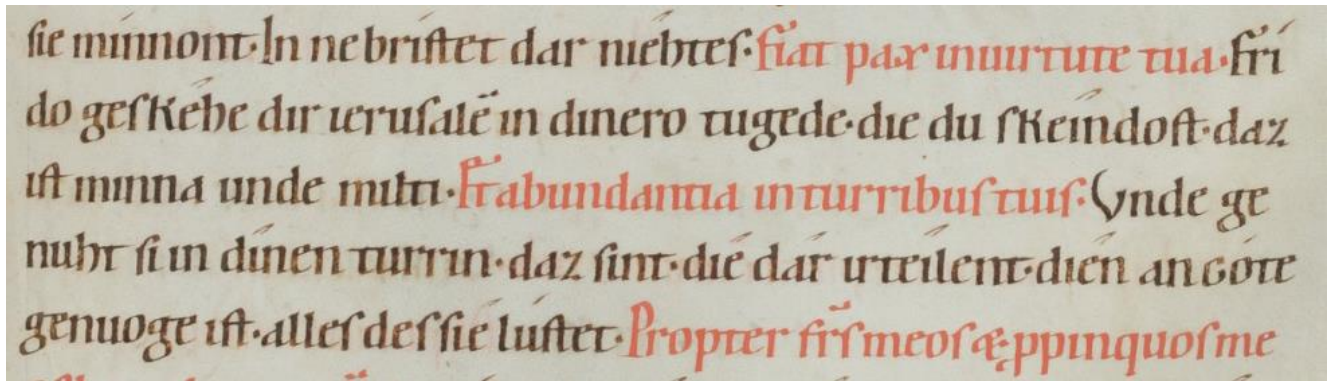 sie minnont· In nebristet dar niêhtes· fiat pax inuirtute tua· fri
do geskéhe dir ierusalē in dinero tugede· die du skeindost· daz
ist minna unde milti· Et abundantia inturribus tuis· Vnde ge
nuht si in dînen turrin· daz sint· die dâr irteilent· dien an góte
genuoge ist· alles des sié lústet· Propter fr̄s meos & ꝓpinquos me